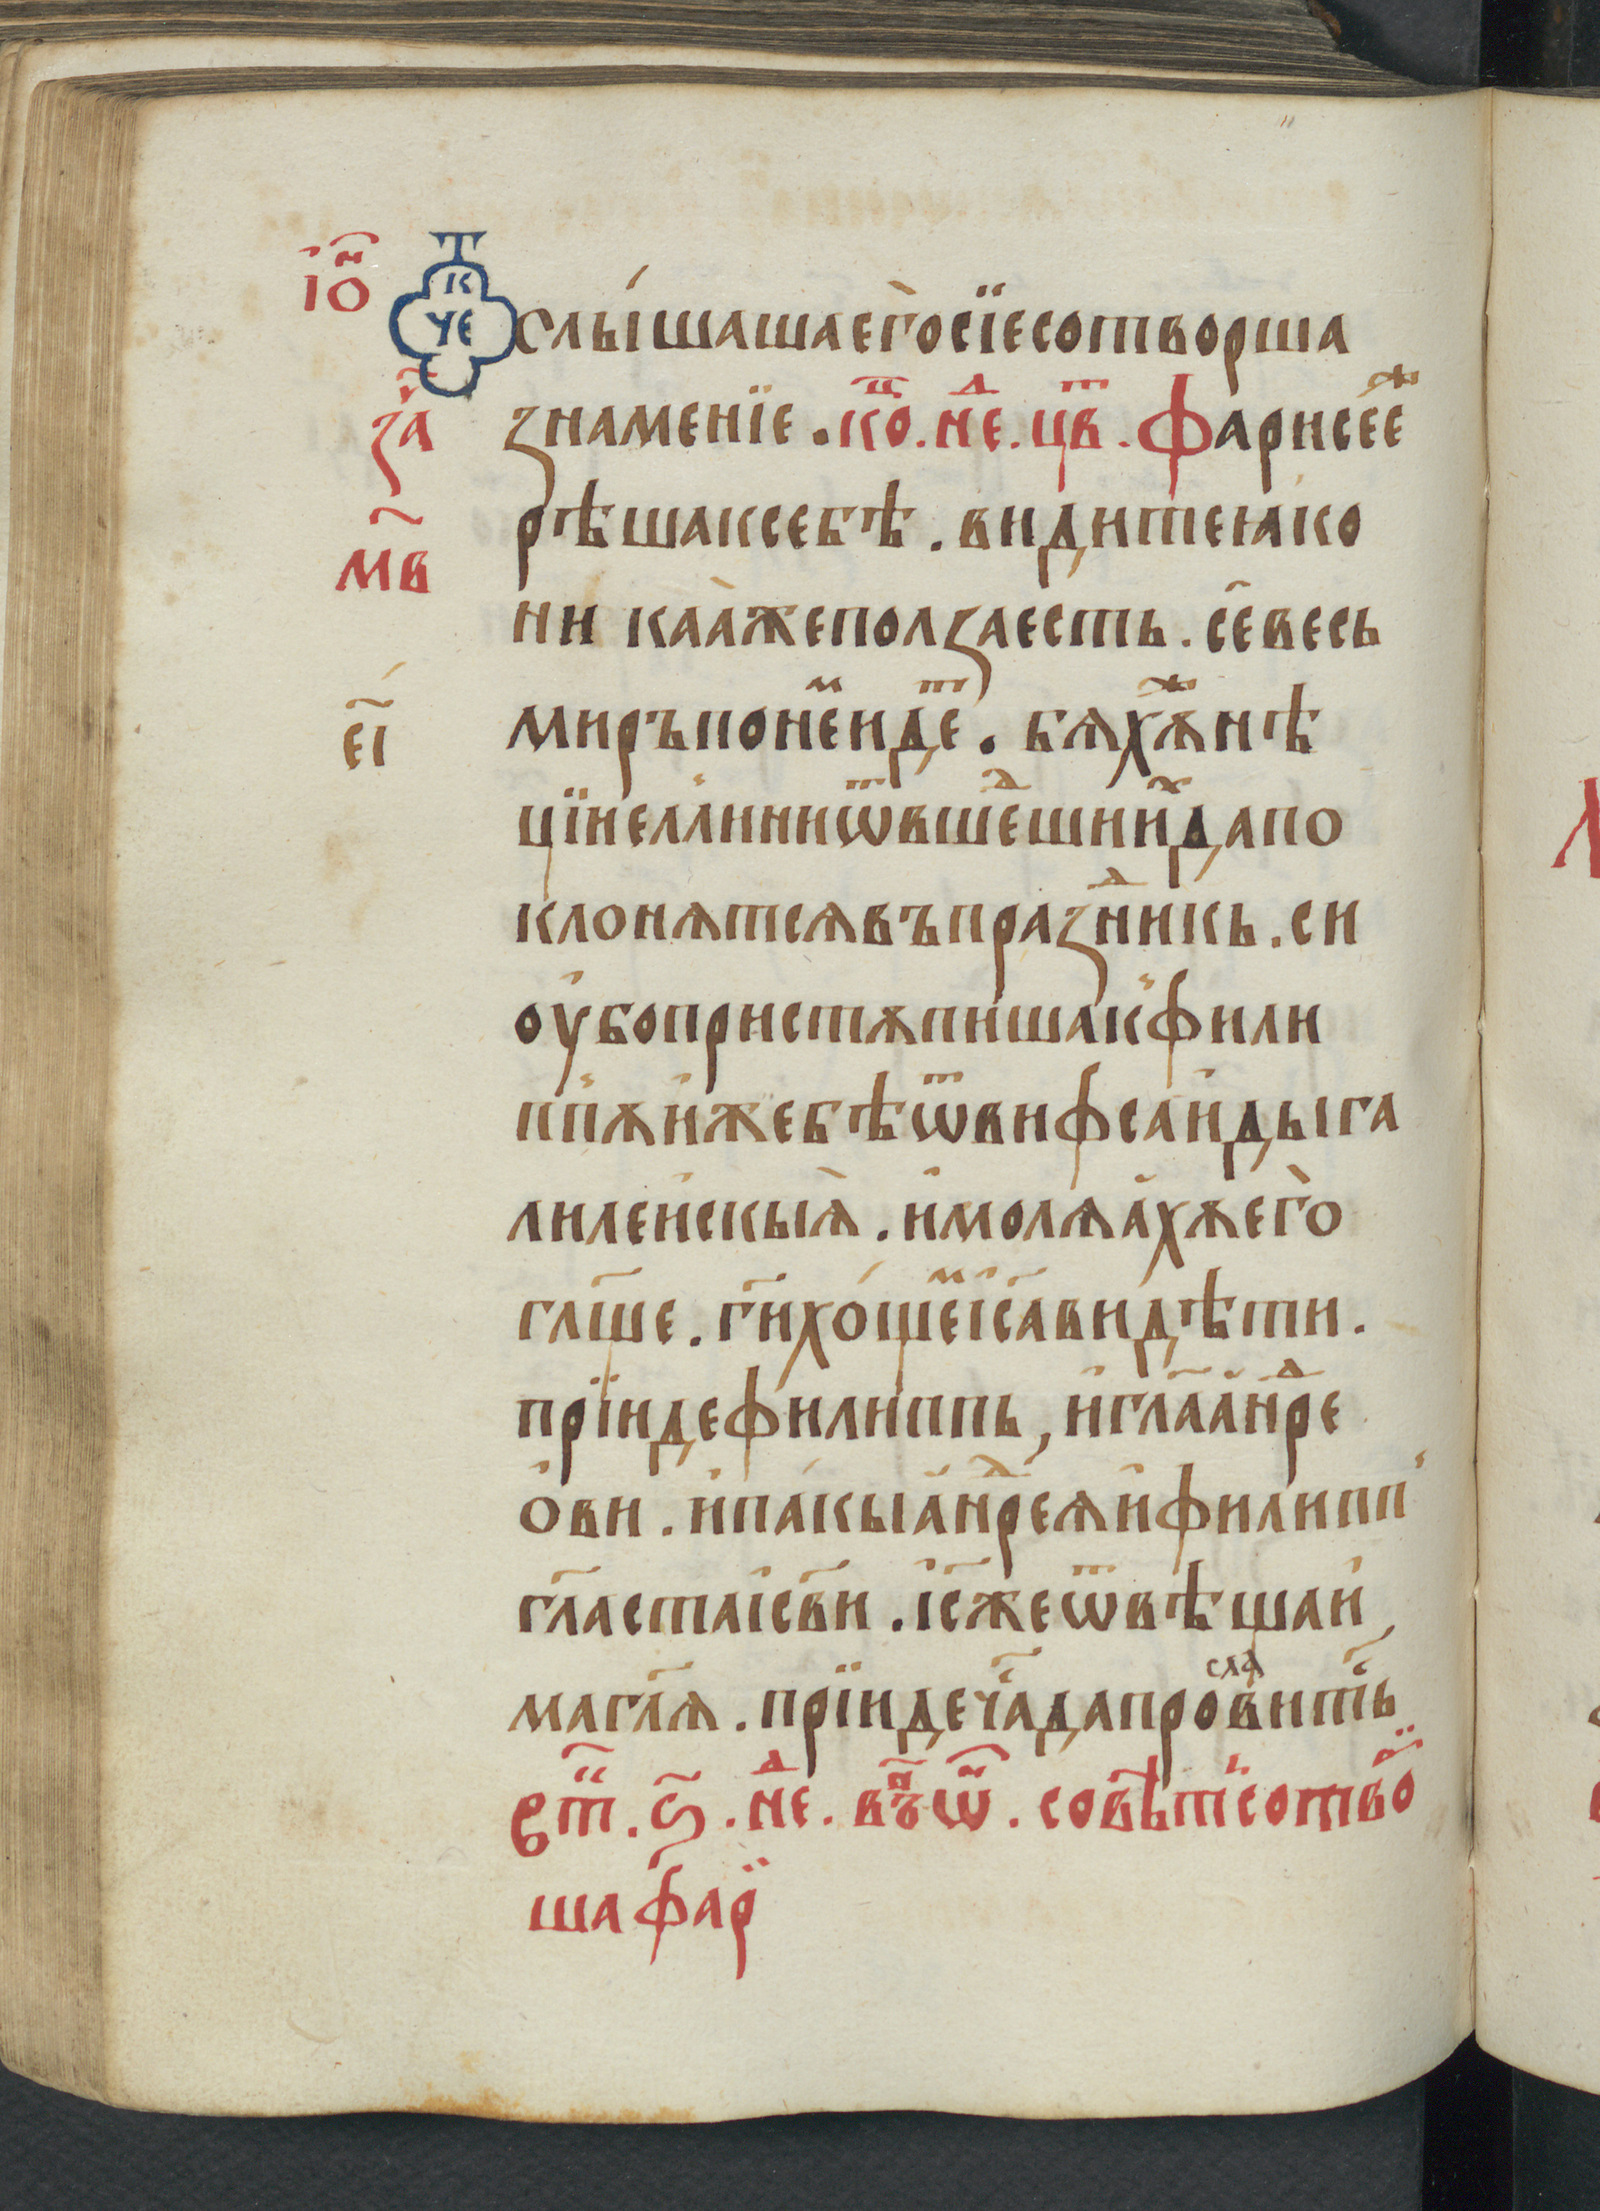 і҆ѡ҃
к҃
т
че
слы́шашаег҆осїесотворша
за҃
знаменїе. ко҃ц. не҃д. цв҃т. фарисее҃ж
м҃в
рѣшаксебѣ. видитеꙗко
ни каꙗ҆жеползаесть. се҆весь
є҃і
миръпоне҃мид҃те. бѧх҃жѫнѣ
цїиеллиниѿвшеⷣшииⷯдапо
клонѧтсѧвъпразⷣникь. си
оу҆бопристѫпишак҆фили
ппѫи҆жебѣѿвифсаи҆дыга
лиле́искыѧ҆. и҆молѧа҆хѫег҆о
гл҃ще. г҃ихо́щеⷨі҆с҃авидѣти.
прїидефили́ппь, и҆гл҃аа҆нⷣре
о҆ви. и҆па́кыа҆нⷣреѧи҆филипп
гл҃астаі҆с҃ви. і҆с҃жеѿвѣщаи҆
магл҃ѧ. прїидеча҃сдапрославитсь
е҃т. ѕ҃. не҃д. въ҃нѿ. совѣтсотво
шафар